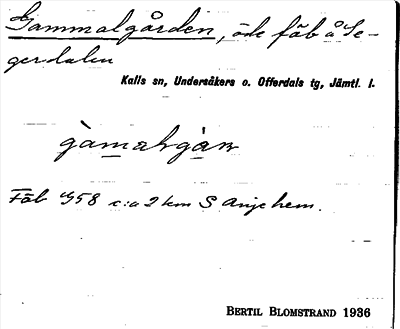 Gammalgården, öde fäb å Se-
gerdalen
Kalls sn, Undersåkers o. Offerdals tg, Jämtl. l.
gàmalgàṇ
Fäb 958 c:a 2 km S Anjehem.
BERTIL BLOMSTRAND 1936